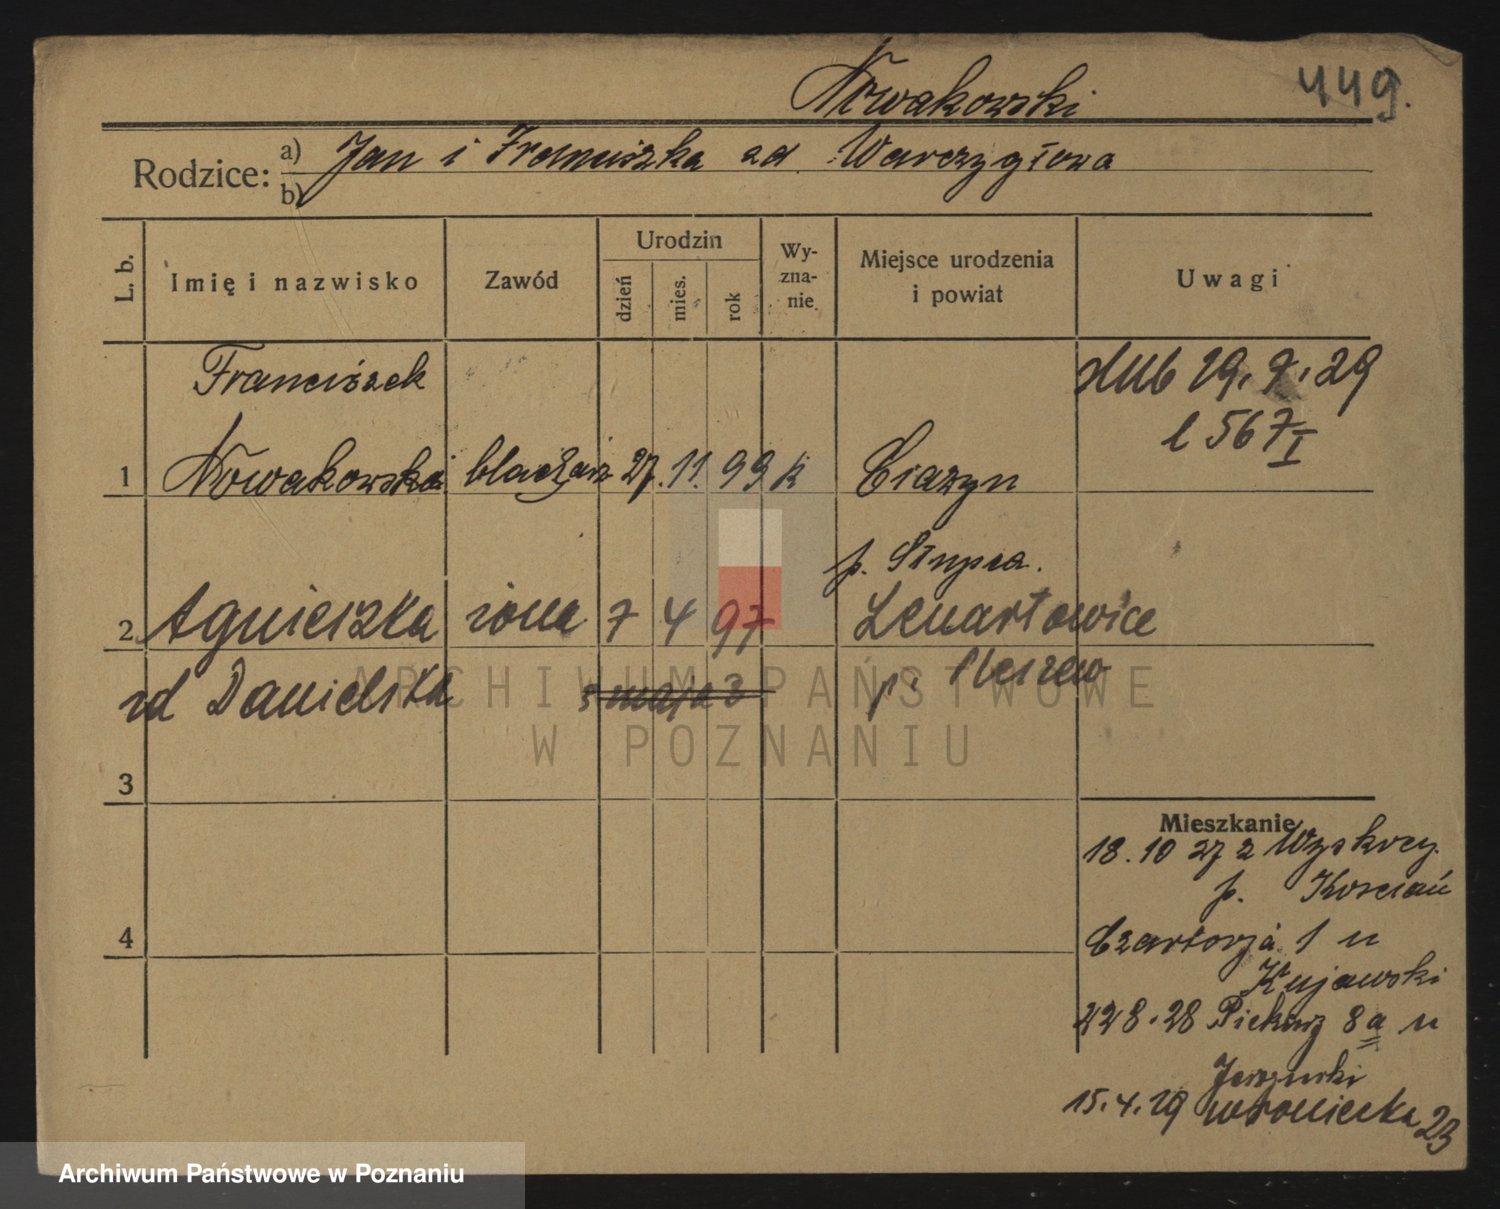 Nowakowski
449.
Rodzice: a) Jan i Franciszka zd Warczygłowa
b)
L. b.
Imię i nazwisko
Zawód
Urodzin
dzień
mies.
rok
Wy-
zna-
nie
Miejsce urodzenia
i powiat
Uwagi
Franciszek
1 Nowakowski blacharz 27. 11. 99 k Ciazyn
p. Słupca.
dub 19. 9. 29
l 567 I
2 Agnieszka żona 7 4 97 Lenartowice
zd Danielska 5 maja 3 p. Pleszew
3
4
Mieszkanie
18. 10 27 z Wyskocy
p. Kościań
Czartorja 1 u
Kujawski
22 8. 28 Piekary 8a u
15. 4. 29 Wroniecka 23
ARCHIWUM PAŃSTWOWE
W POZNANIU
Archiwum Państwowe w Poznaniu